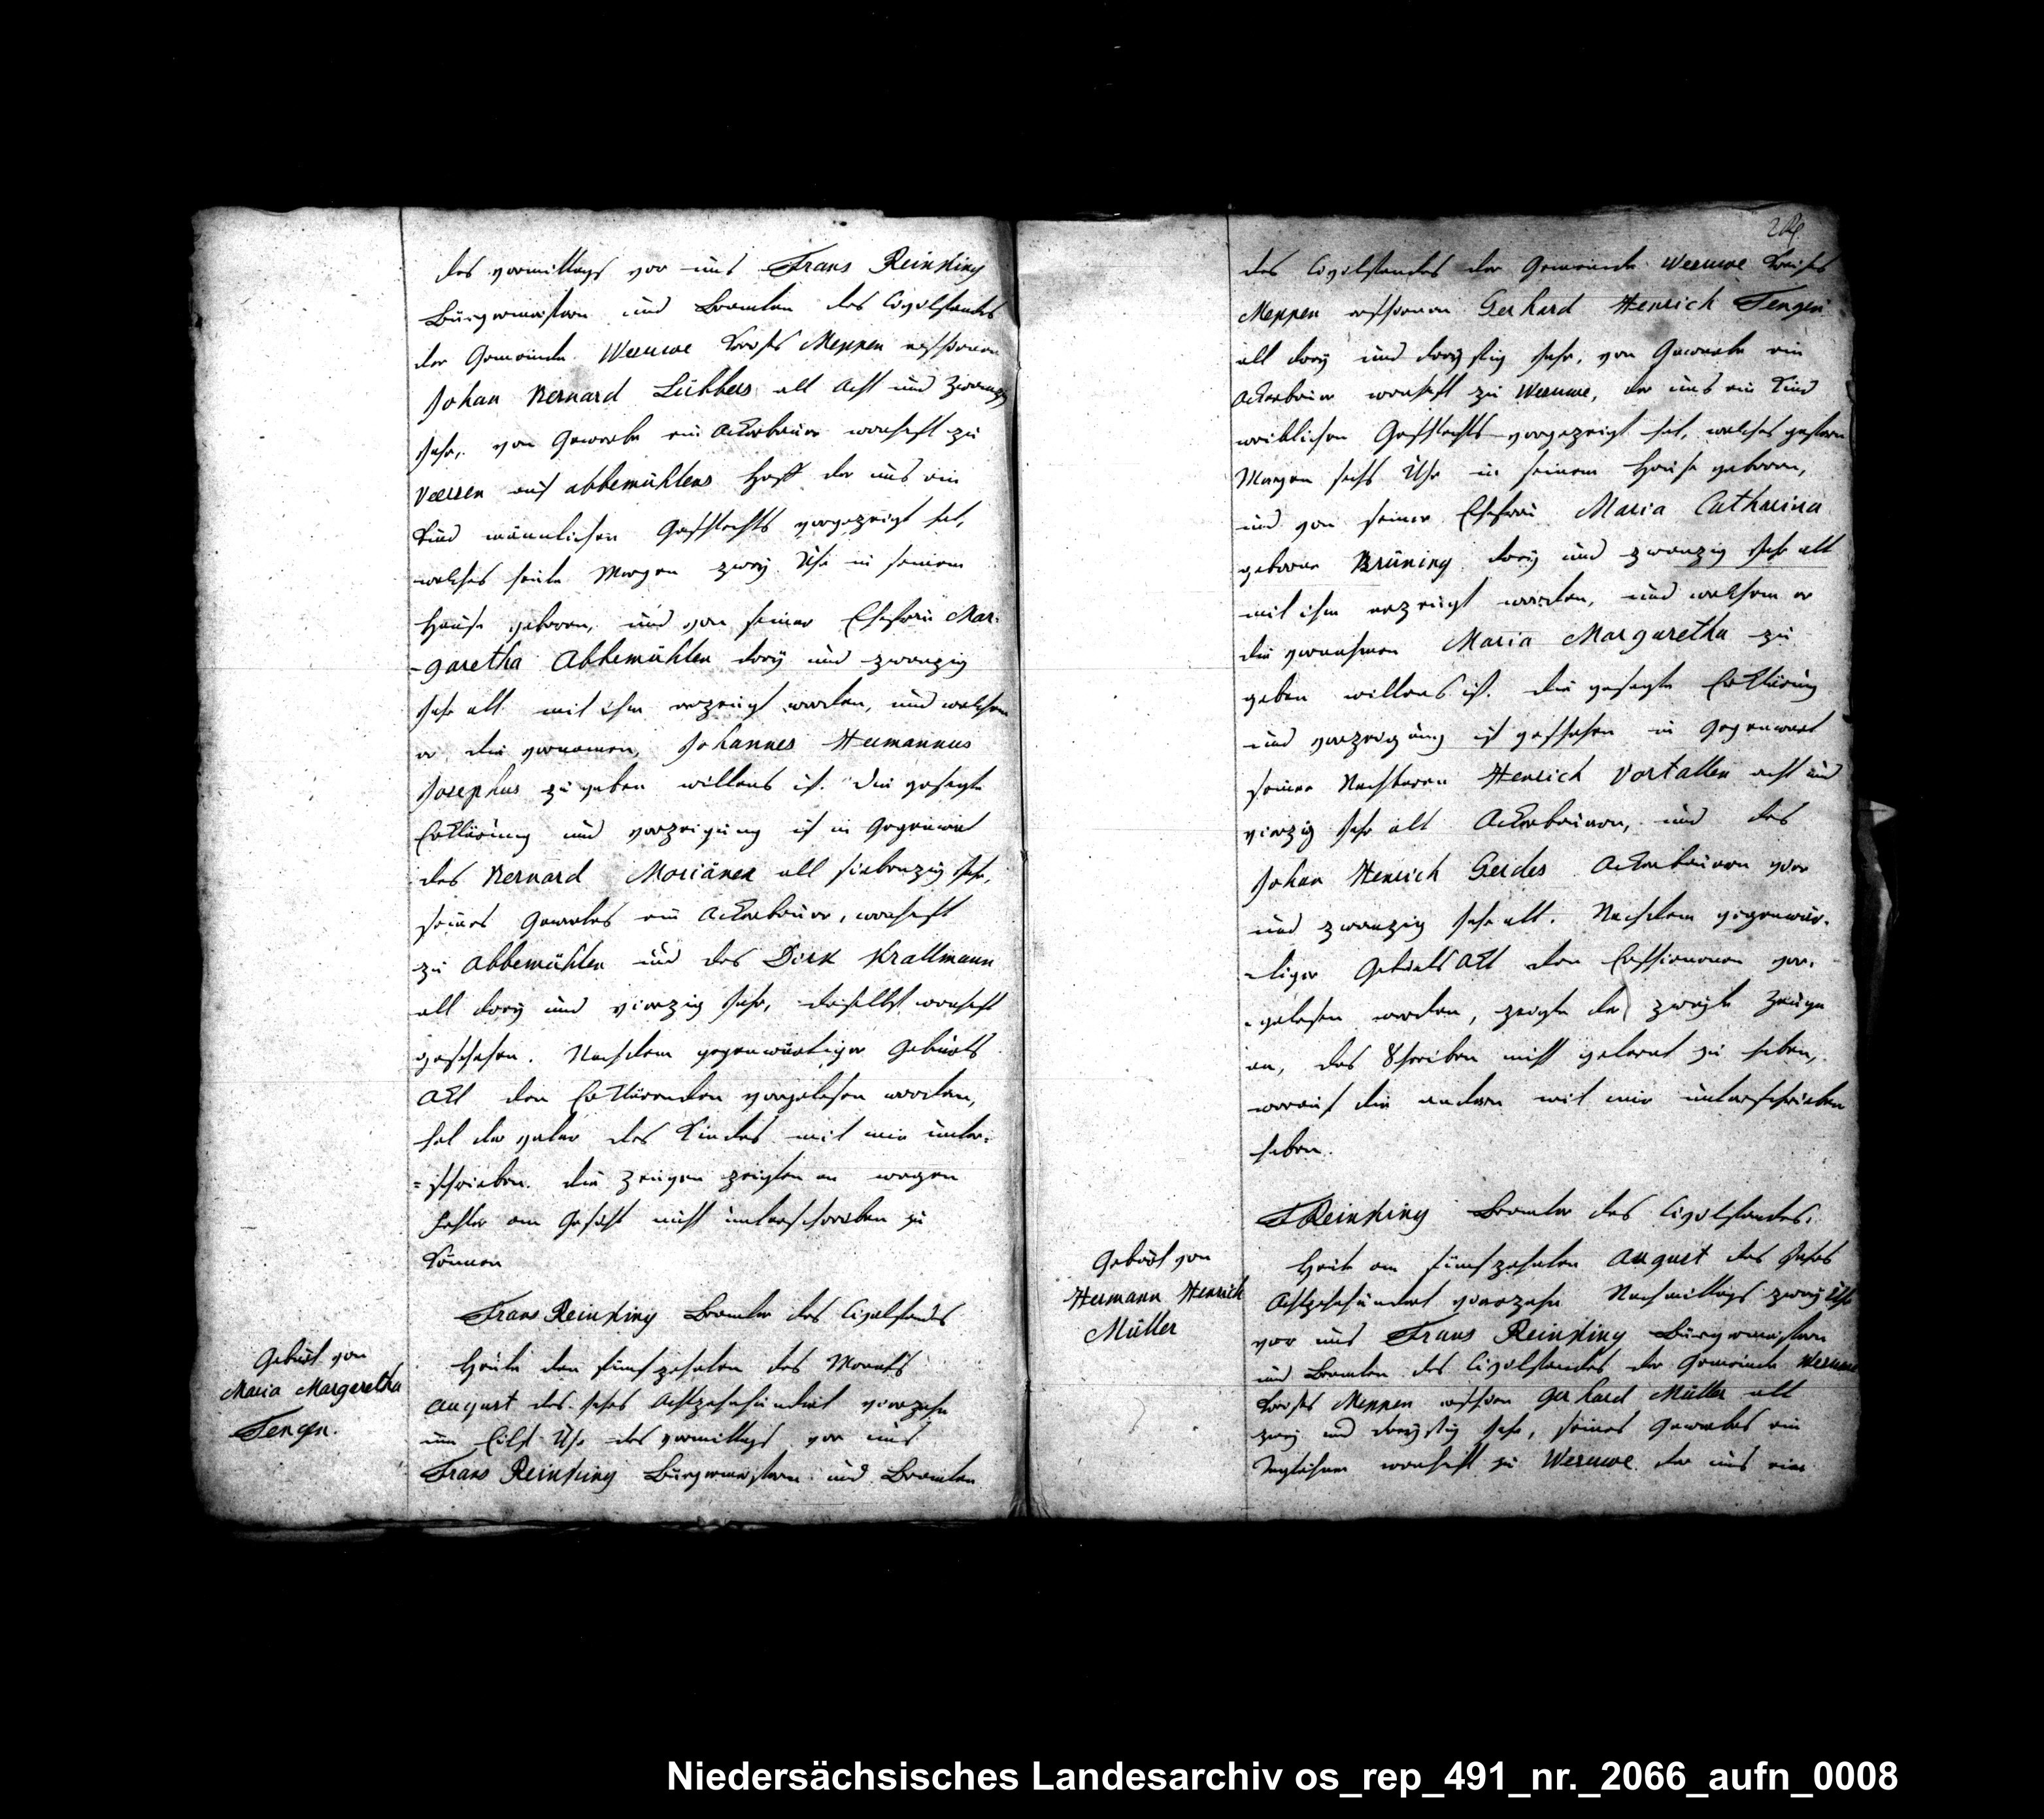 des vormittags vor uns Frans Reinking
Bürgermeistern und Beamten des Civilstandes
der Gemeinde Wesuwe Kreises Meppen erschienen
Johan Bernard Lübbers alt Acht und zwanzig
Jahr, von Gewerbe ein Ackerbauer wonhaft zu
Versen auf abbemühlens Hoff der uns ein
Kind männlichen Geschlechts vorgezeigt hat,
welches heute Morgen zwey Uhr in seinem
Hause geboren, und von seiner Ehefrau Mar-
-garetha Abbemühlen drey und zwanzig
Jahr alt mit ihm erzeugt worden, und welchem
er die vornamen, Johannes Hermannus
Josephus zu geben willens ist. Die gesagte
Erklärung und vorzeigung ist in Gegenwart
des Bernard Moriänen alt siebenzig Jahr,
seines Gewerbes ein Ackerbauer, wonhaft
zu Abbemühlen und des Dirk Krallmann
alt drey und vierzig Jahr, daselbst wonhaft
geschehen. Nachdem gegenwärtiger Geburts
Akt den Erklärenden vorgelesen worden,
hat der vater des Kindes mit mir unter=
=schrieben. Die Zeugen zeigten an wegen
Fehler am Gesicht nicht unterschreiben zu
können
Frans Reinking Beamter des Civilstandes
Geburt von
Maria Margaretha
Tengen.
Heute den fünfzehnten des Monats
August des Jahrs Achtzehnhundert vierzehn
um Eilf Uhr des vormittags vor uns
Frans Reinking Bürgermeistern und Beamten
des Civilstandes der Gemeinde Wesuwe Kreises
Meppen erschienen Gerhard Henrich Tengen
alt drey und dreyßig Jahr, von Gewerbe ein
Ackerbauer wonhaft zu Wesuwe, der uns ein Kind
weiblichen Geschlechts vorgezeigt hat, welches gestern
Morgen sechs Uhr in seinem Hause geboren,
und von seiner Ehefrau Maria Catharina
geborne Brüning drey und zwanzig Jahr alt
mit ihm erzeugt worden, und welchem er
die vornahmen Maria Margaretha zu
geben willens ist. Die gesagte Erklärung
und vorzeigung ist geschehen in Gegenwart
seiner Nachbaren Henrich Vortallen acht und
vierzig Jahr alt Ackerbauern, und des
Johan Henrich Gerdes Ackerbauern vier
und zwanzig Jahr alt. Nachdem gegenwär-
-tiger Geburts Akt den Erschienenen vor-
-gelesen worden, zeigte der zweyte Zeuge
an, das Schreiben nicht gelernt zu haben,
worauf die andern mit mir unterschrieben
haben.
FReinking Beamter des Civilstandes.
Geburt von
Hermann Henrich
Müller
Heute am fünfzehnten August des Jahrs
Achtzehnhundert vierzehn Nachmittags zwey Uhr
vor uns Frans Reinking Bürgermeistern
und Beamten des Civilstandes der Gemeinde Wesuwe
Kreises Meppen erschien Gerhard Müller alt
zwey und dreyßig Jahr, seines Gewerbes ein
wonhaft zu Wesuwe der uns ein
Niedersächsisches Landesarchiv os_rep_491_nr._2066_aufn_0008